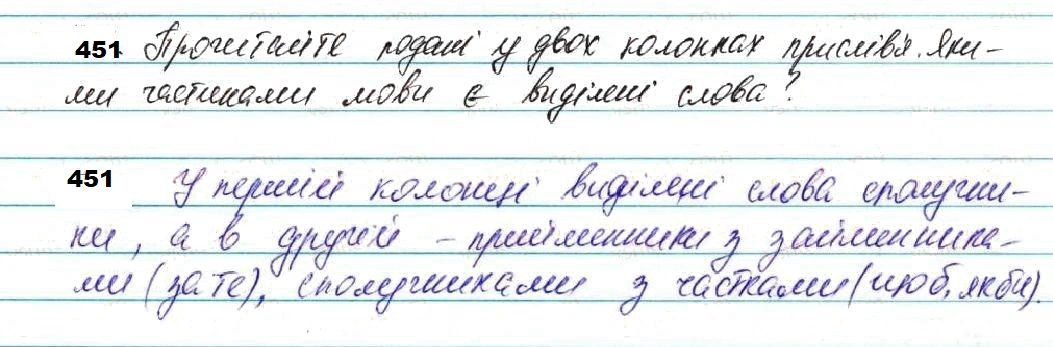 451 Прочитайте подані у двох колонках прислів'я. Яки-
ми частинами мови є виділені слова?
451 У першій колонці виділені слова сполучни-
ки, а в другій - прийменники з займенника-
ми (за те), сполучниками з частками (що б, якби).